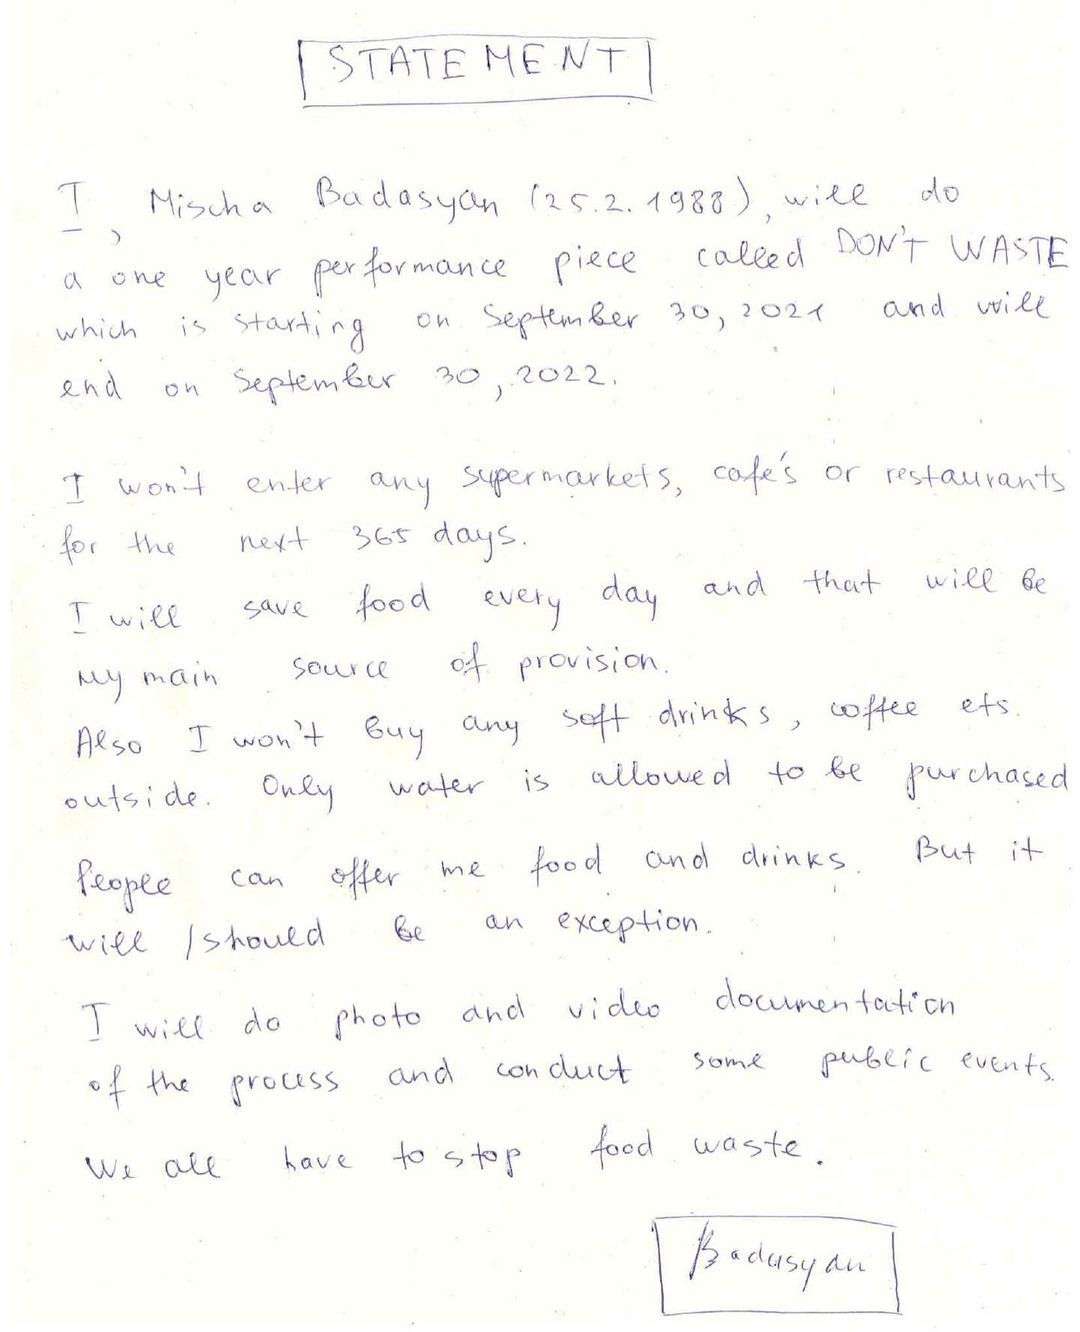 STATEMENT
I, Mischa Badasyan (25.2.1988), will do
a one year performance piece called DON'T WASTE
which is starting on September 30, 2021 and will
end on September 30, 2022.
I won't enter any supermarkets, cafe's or restaurants
for the next 365 days.
I will save food every day and that will be
my main source of provision.
Also I won't buy any soft drinks, coffee ets.
outside. Only water is allowed to be purchased
People can offer me food and drinks. But it
will / should be an exception.
I will do photo and video documentation
of the process and conduct some public events.
We all have to stop food waste.
Badasyan